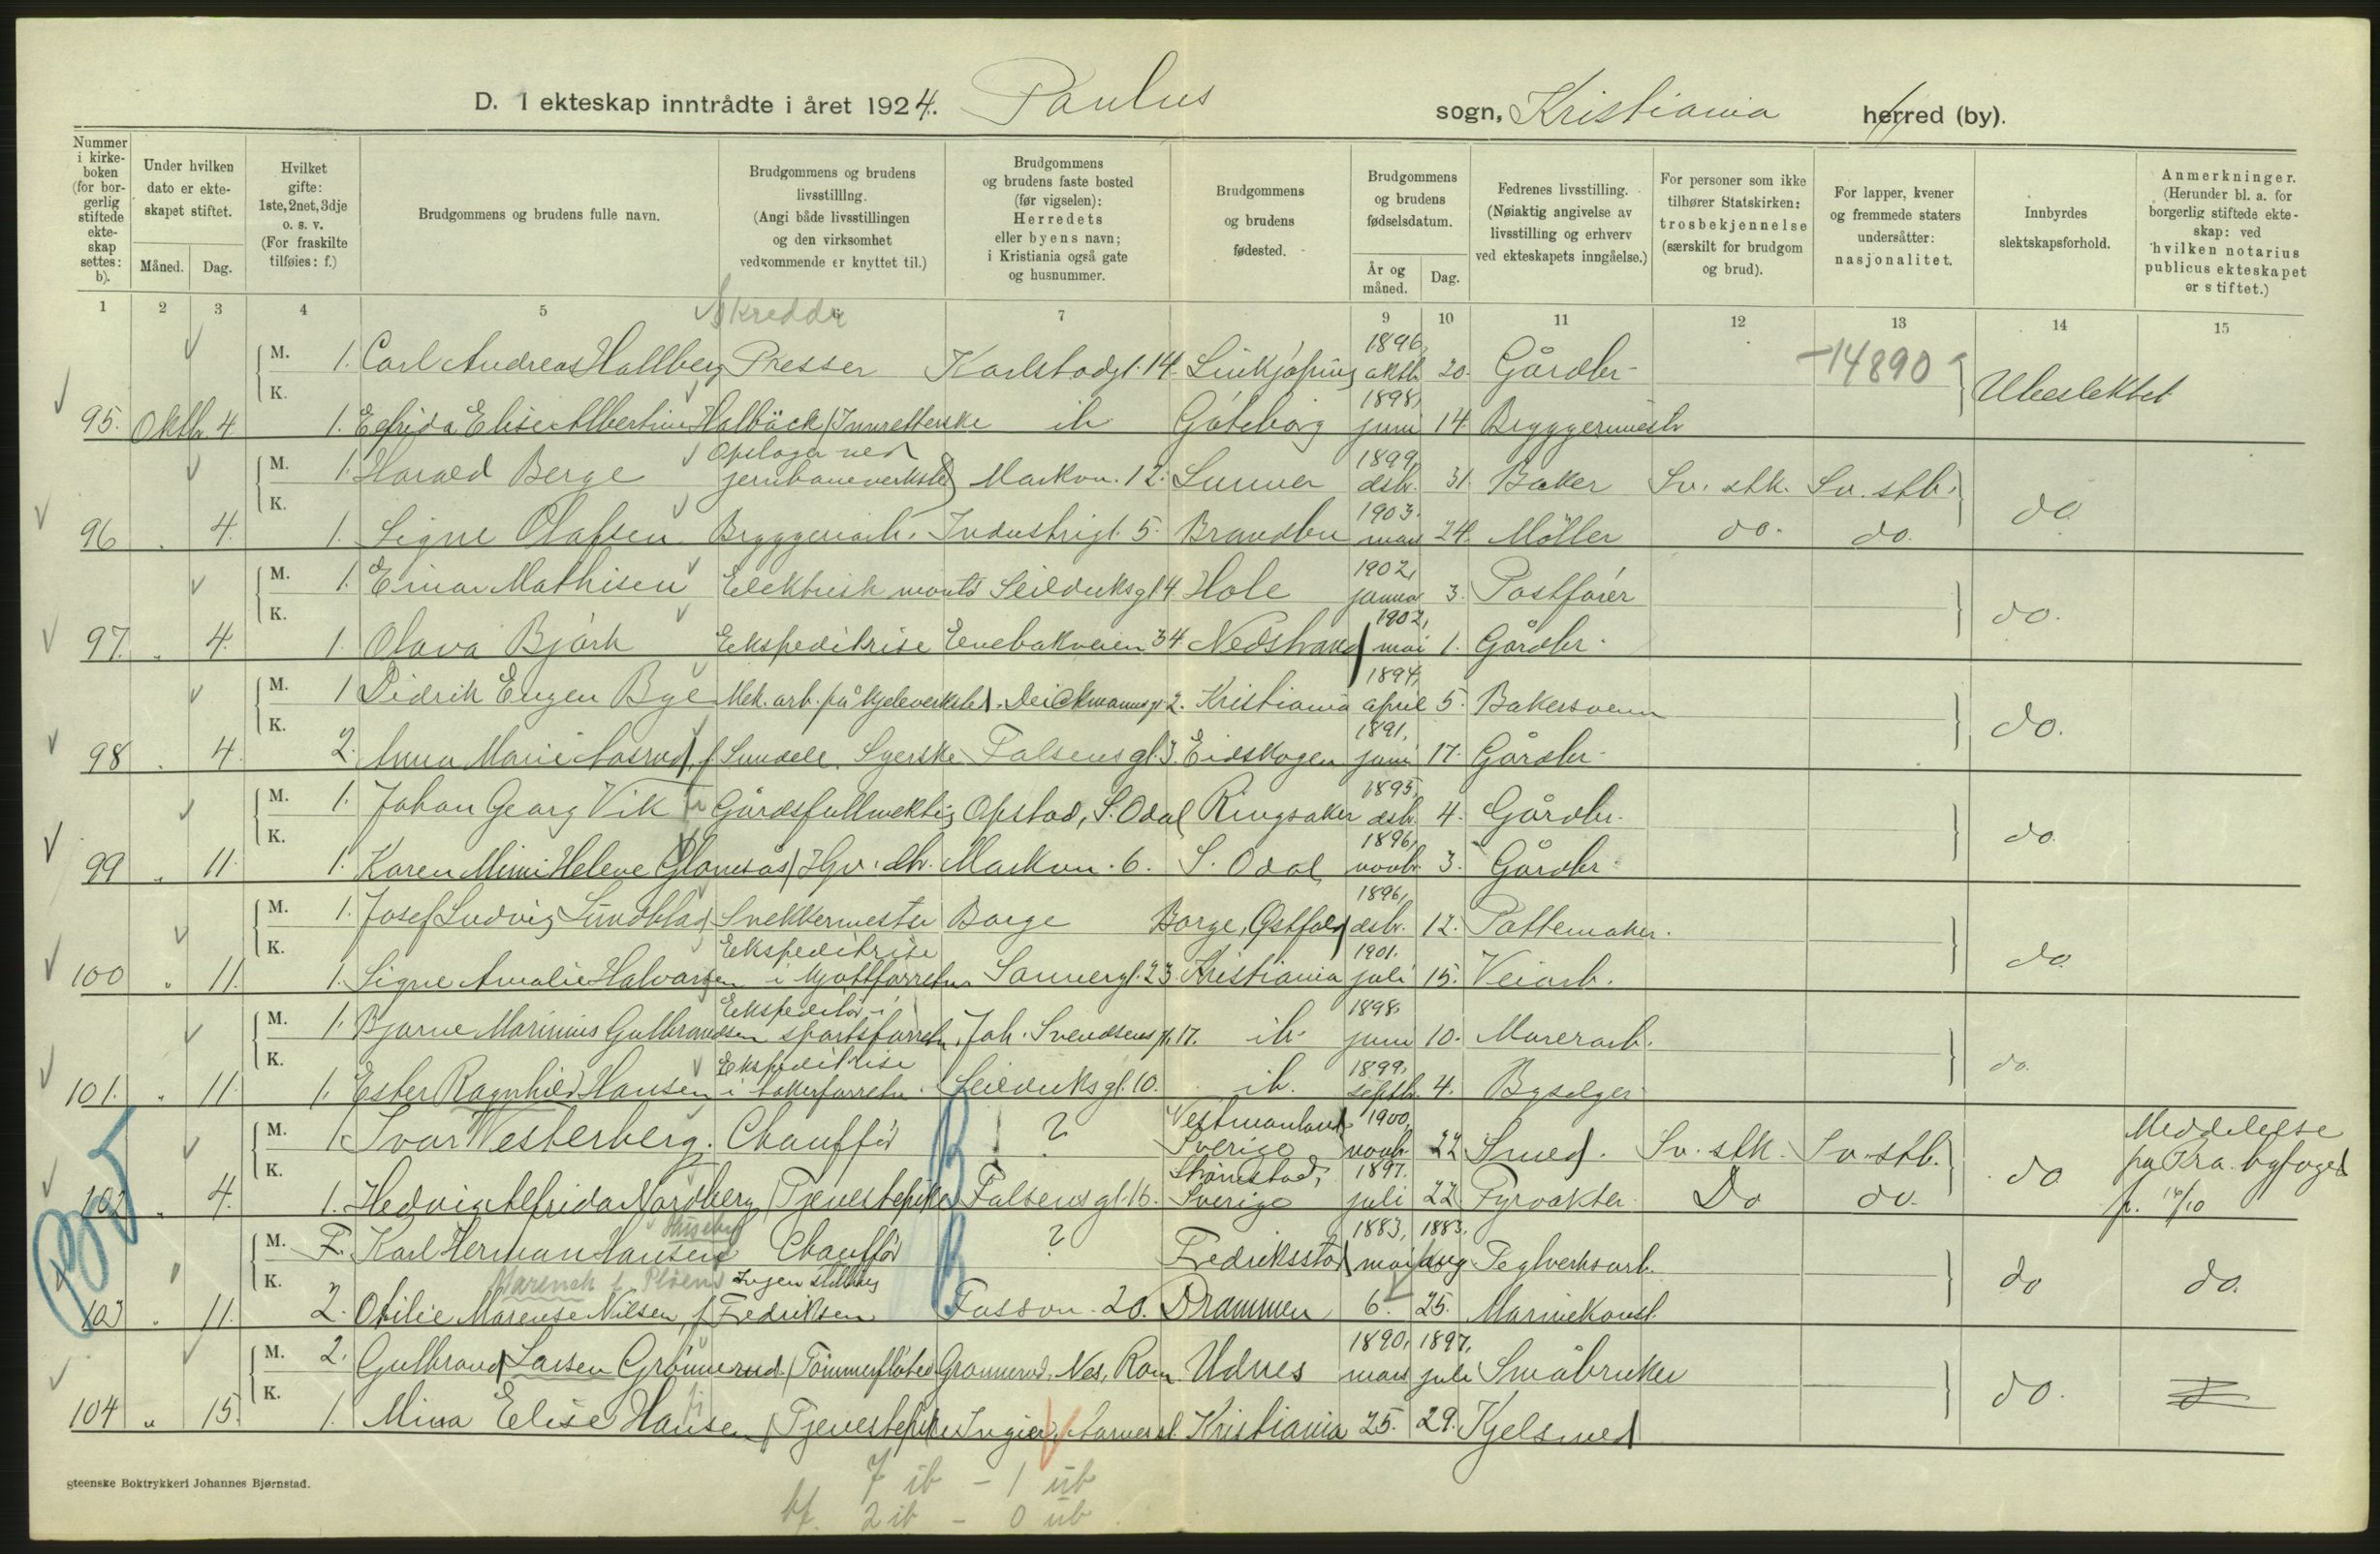 D. I ekteskap inntrådte i året 1924. Paulus sogn, Kristiania herred (by).
Nummer i kirkeboken (for borgerlig stiftede ekteskap settes: b).
Under hvilken dato er ekteskapet stiftet.
Måned. Dag.
Hvilket gifte: 1ste, 2net, 3dje o. s. v. (For fraskilte tilføies: f.)
Brudgommens og brudens fulle navn.
Brudgommens og brudens livsstilling. (Angi både livsstillingen og den virksomhet vedkommende er knyttet til.)
Brudgommens og brudens faste bosted (før vigselen): Herredets eller byens navn; i Kristiania også gate og husnummer.
Brudgommens og brudens fødested.
Brudgommens og brudens fødselsdatum.
År og måned. Dag.
Fedrenes livsstilling. (Nøiaktig angivelse av livsstilling og erhverv ved ekteskapets inngåelse.)
For personer som ikke tilhører Statskirken: trosbekjennelse (særskilt for brudgom og brud).
For lapper, kvener og fremmede staters undersåtter: nasjonalitet.
Innbyrdes slektskapsforhold.
Anmerkninger. (Herunder bl. a. for borgerlig stiftede ekteskap: ved hvilken notarius publicus ekteskapet er stiftet.)
1 2 3 4 5 7 9 10 11 12 13 14 15
Skredder
M. 1. Carl Andreas Hallberg Presser Karlstadgt. 14. Linkjøping 1896, oktb. 20. Gårdbr. -14890 Ubeslektet
K. 95. Oktb. 4 1. Elfrida Elise Albertine Halbäck Innretterske ib Gøteborg 1898, juni 14. Bryggermestr
M. 1. Harald Berge Oplager ved jernbaneverksted Markvn. 12. Lunner 1899, desb. 31. Baker Sv. stk. Sv. stb. do.
K. 96 . 4. 1. Signe Olafsen Bryggeriarb. Industrigt. 5. Brandbu 1903. mars 24. Möller do. do.
M. 1. Einar Mathisen Elektrisk montø Seilduksgt 4 Hole 1902, januar 3. Postfører do.
K. 97. . 4. 1. Olava Bjørk Ekspeditrise Enebakveien 34 Nedstrand 1902, mai 1. Gårdbr.
M. 1 Didrik Eugen Bye Mek. arb. på kjeleverksted. Deichmannsgt. 2. Kristiania 1894, april 5. Bakersvenn do.
K. 98 . 4. 2. Anna Marie Aasrud, f. Sundell. Syerske Falsens gt. 3. Eidskogen 1891, juni 17. Gårdbr.
M. 1. Johan Georg Vik Gårdsfullmektig Opstad, S. Odal Ringsaker 1895, desb. 4. Gårdbr. do.
K. 99 . 11. 1. Karen Mimi Helene Glomsås Hgv. db. Markvn. 6. S. Odal 1896, novb. 3. Gårdbr.
M. 1. Josef Ludvig Sundblad Snekkermester Borge Borge, Østfold 1896, desb. 12. Pottemaker. do
K. 100 . 11. 1. Signe Amalie Halvorsen Ekspeditrise i kjøttforretn. Sannergt. 23 Kristiania 1901. juli 15. Veiarb.
M. 1. Bjarne Marinius Gulbrandsen Ekspeditør i sportsforretn. Joh. Svendsens gt. 17. ib. 1898. juni 10. Murerarb. do.
K. 101. . 11. 1. Ester Ragnhild Hansen Ekspeditrise i bakerforretn. Seilduksgt. 10. ib. 1899. septb. 4. Byselger
M. 1. Ivar Westerberg. Chauffør ? Vestmanland Sverige 1900, novb. 22 Smed. Sv. stk. Sv. stb. do Meddelelse fra Kra. byfoged
K. 102 . 4. 1. Hedvig Alfrida Nordberg Tjenestepike Falsens gt. 16. Strömstad, Sverige 1897. juli 22. Fyrvakter Do do. f. 14/10
M. F. Karl Herman Hansen Chauffør ? Fredriksstad 1883, 1883, mai aug Teglverksarb. do do.
K. 103 . 11. 2. Otilie Marense Nilsen, f. Fredriksen Ingen stilling Fossvn. 20. Drammen 6. 25. Marinekonst.
M. 2. Gulbrand Larsen Grønnerud Tømmerfløter Grønnerud. Nes, Rom. Udnes 1890, 1897, mars juli Småbruker do.
K. 104 " 15. 1. Mina Elise Hansen Tjenestepike Kristiania 25. 29. Kjelsmed
gteenske Boktrykkeri Johannes Bjørnstad.
7 ib - 1 ub
bf. 2 ib - 0 ub